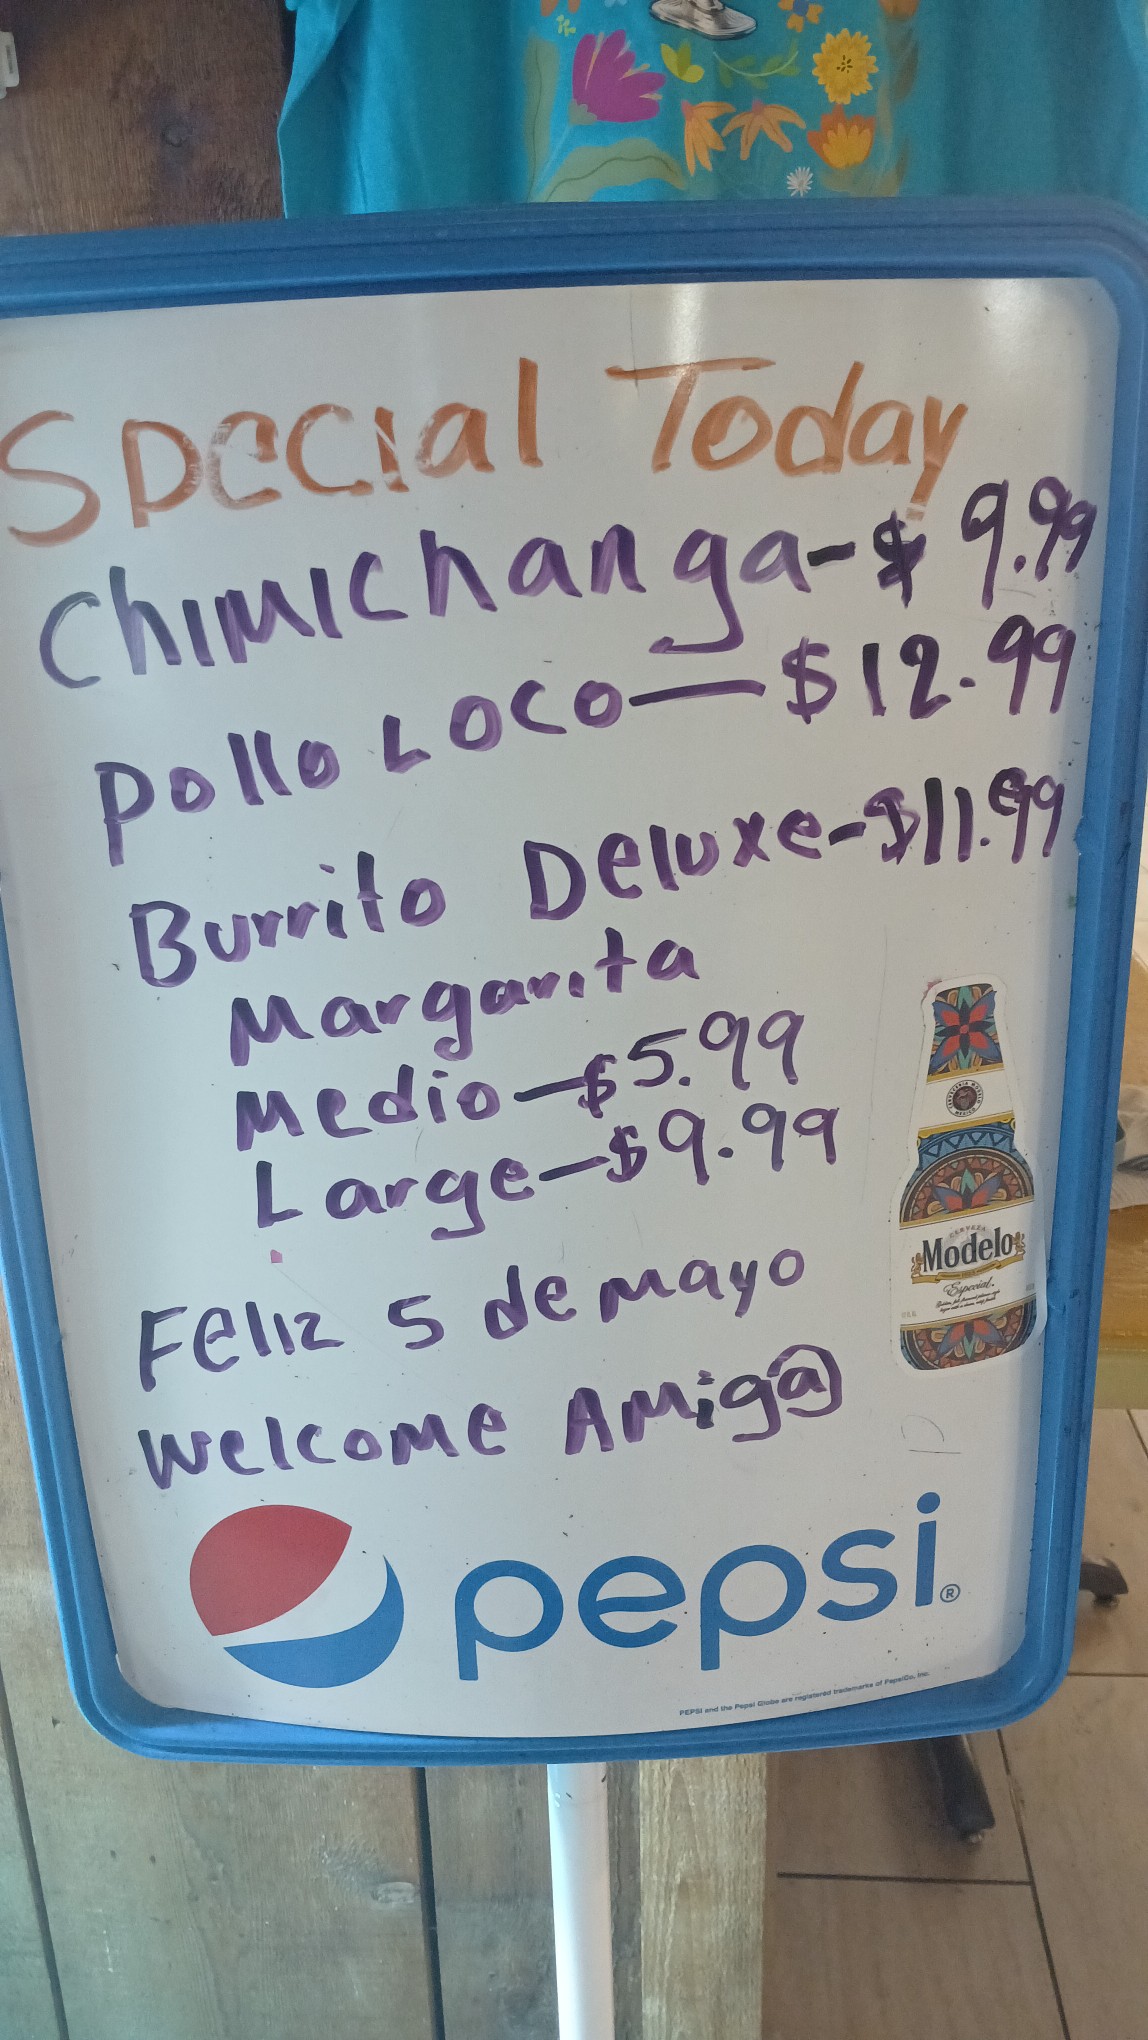 Special Today
Chimichanga-$ 9.99
Pollo Loco—$12.99
Burrito Deluxe-$11.99
Margarita
Medio—$5.99
Large—$9.99
Feliz 5 de mayo
Welcome Amig@
CERVEZA
Modelo
Especial
pepsi®
PEPSI and the Pepsi Globe are registered trademarks of PepsiCo, Inc.